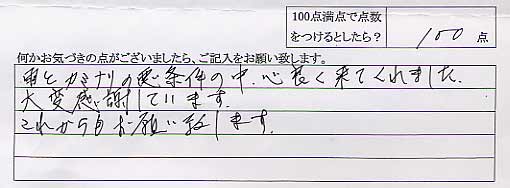 100点満点で点数
をつけるとしたら？ 100 点
何かお気づきの点がございましたら、ご記入をお願い致します。
雨とカミナリの悪条件の中、心良く来てくれました。
大変感謝しています。
これからもお願い致します。